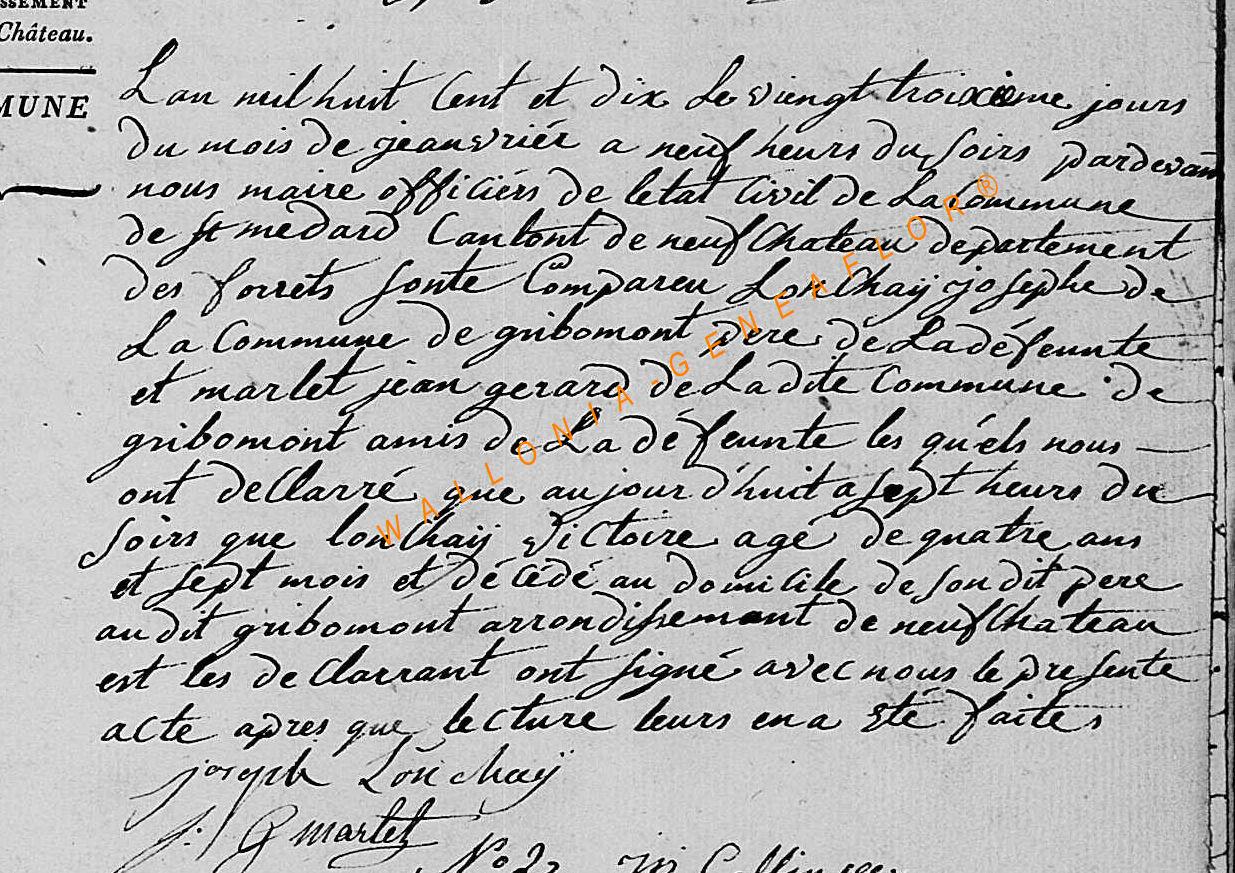 SSEMENT
Château.
MUNE
Lan mil huit Cent et dix Le viengt troixième jours
du mois de jeanvriér a neuf heurs du soirs pardevan
nous maire officiérs de letat Civil de La Commune
de st medard Cantont de neufChateau departement
des forrets sonte Compareu LonChaÿ josephe de
La Commune de gribomont pere de La déffeunte
et marlet jean gerard de La dite Commune de
gribomont amis de La déffeunte les qu'els nous
ont deClarré que aujour d'huit a sept heurs du
soirs que lonChaÿ Victoire age de quatre ans
et sept mois et décédé au domicile de son dit pere
au dit gribomont arrondissement de neufChateau
est les deClarrant ont signé avec nous le presente
acte apres que lecture leurs en a eté faites
joseph Lonchaÿ
j: G marlet
No 2
WALLONIA-GENEAFLOR®